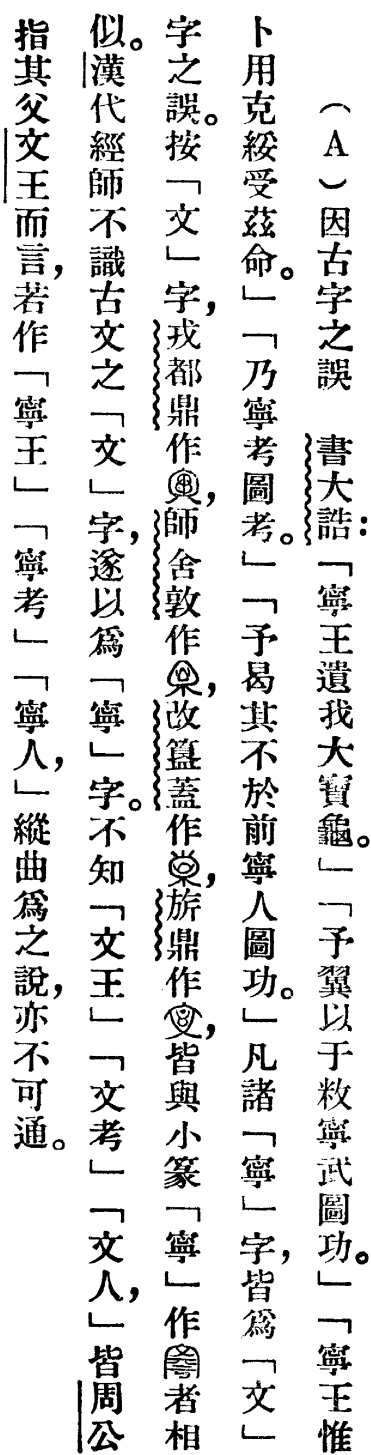 （A）因古字之誤　書大誥：「寧王遺我大寶龜。」「予翼以于敉寧武圖功。」「寧王惟
卜用克綏受茲命。」「乃寧考圖考。」「予曷其不於前寧人圖功。」凡諸「寧」字，皆爲「文」
字之誤。按「文」字，戎都鼎作，師舍敦作，改簋蓋作，旂鼎作，皆與小篆「寧」作者相
似。漢代經師不識古文之「文」字，遂以爲「寧」字。不知「文王」「文考」「文人，」皆周公
指其父文王而言，若作「寧王」「寧考」「寧人，」縱曲爲之說，亦不可通。